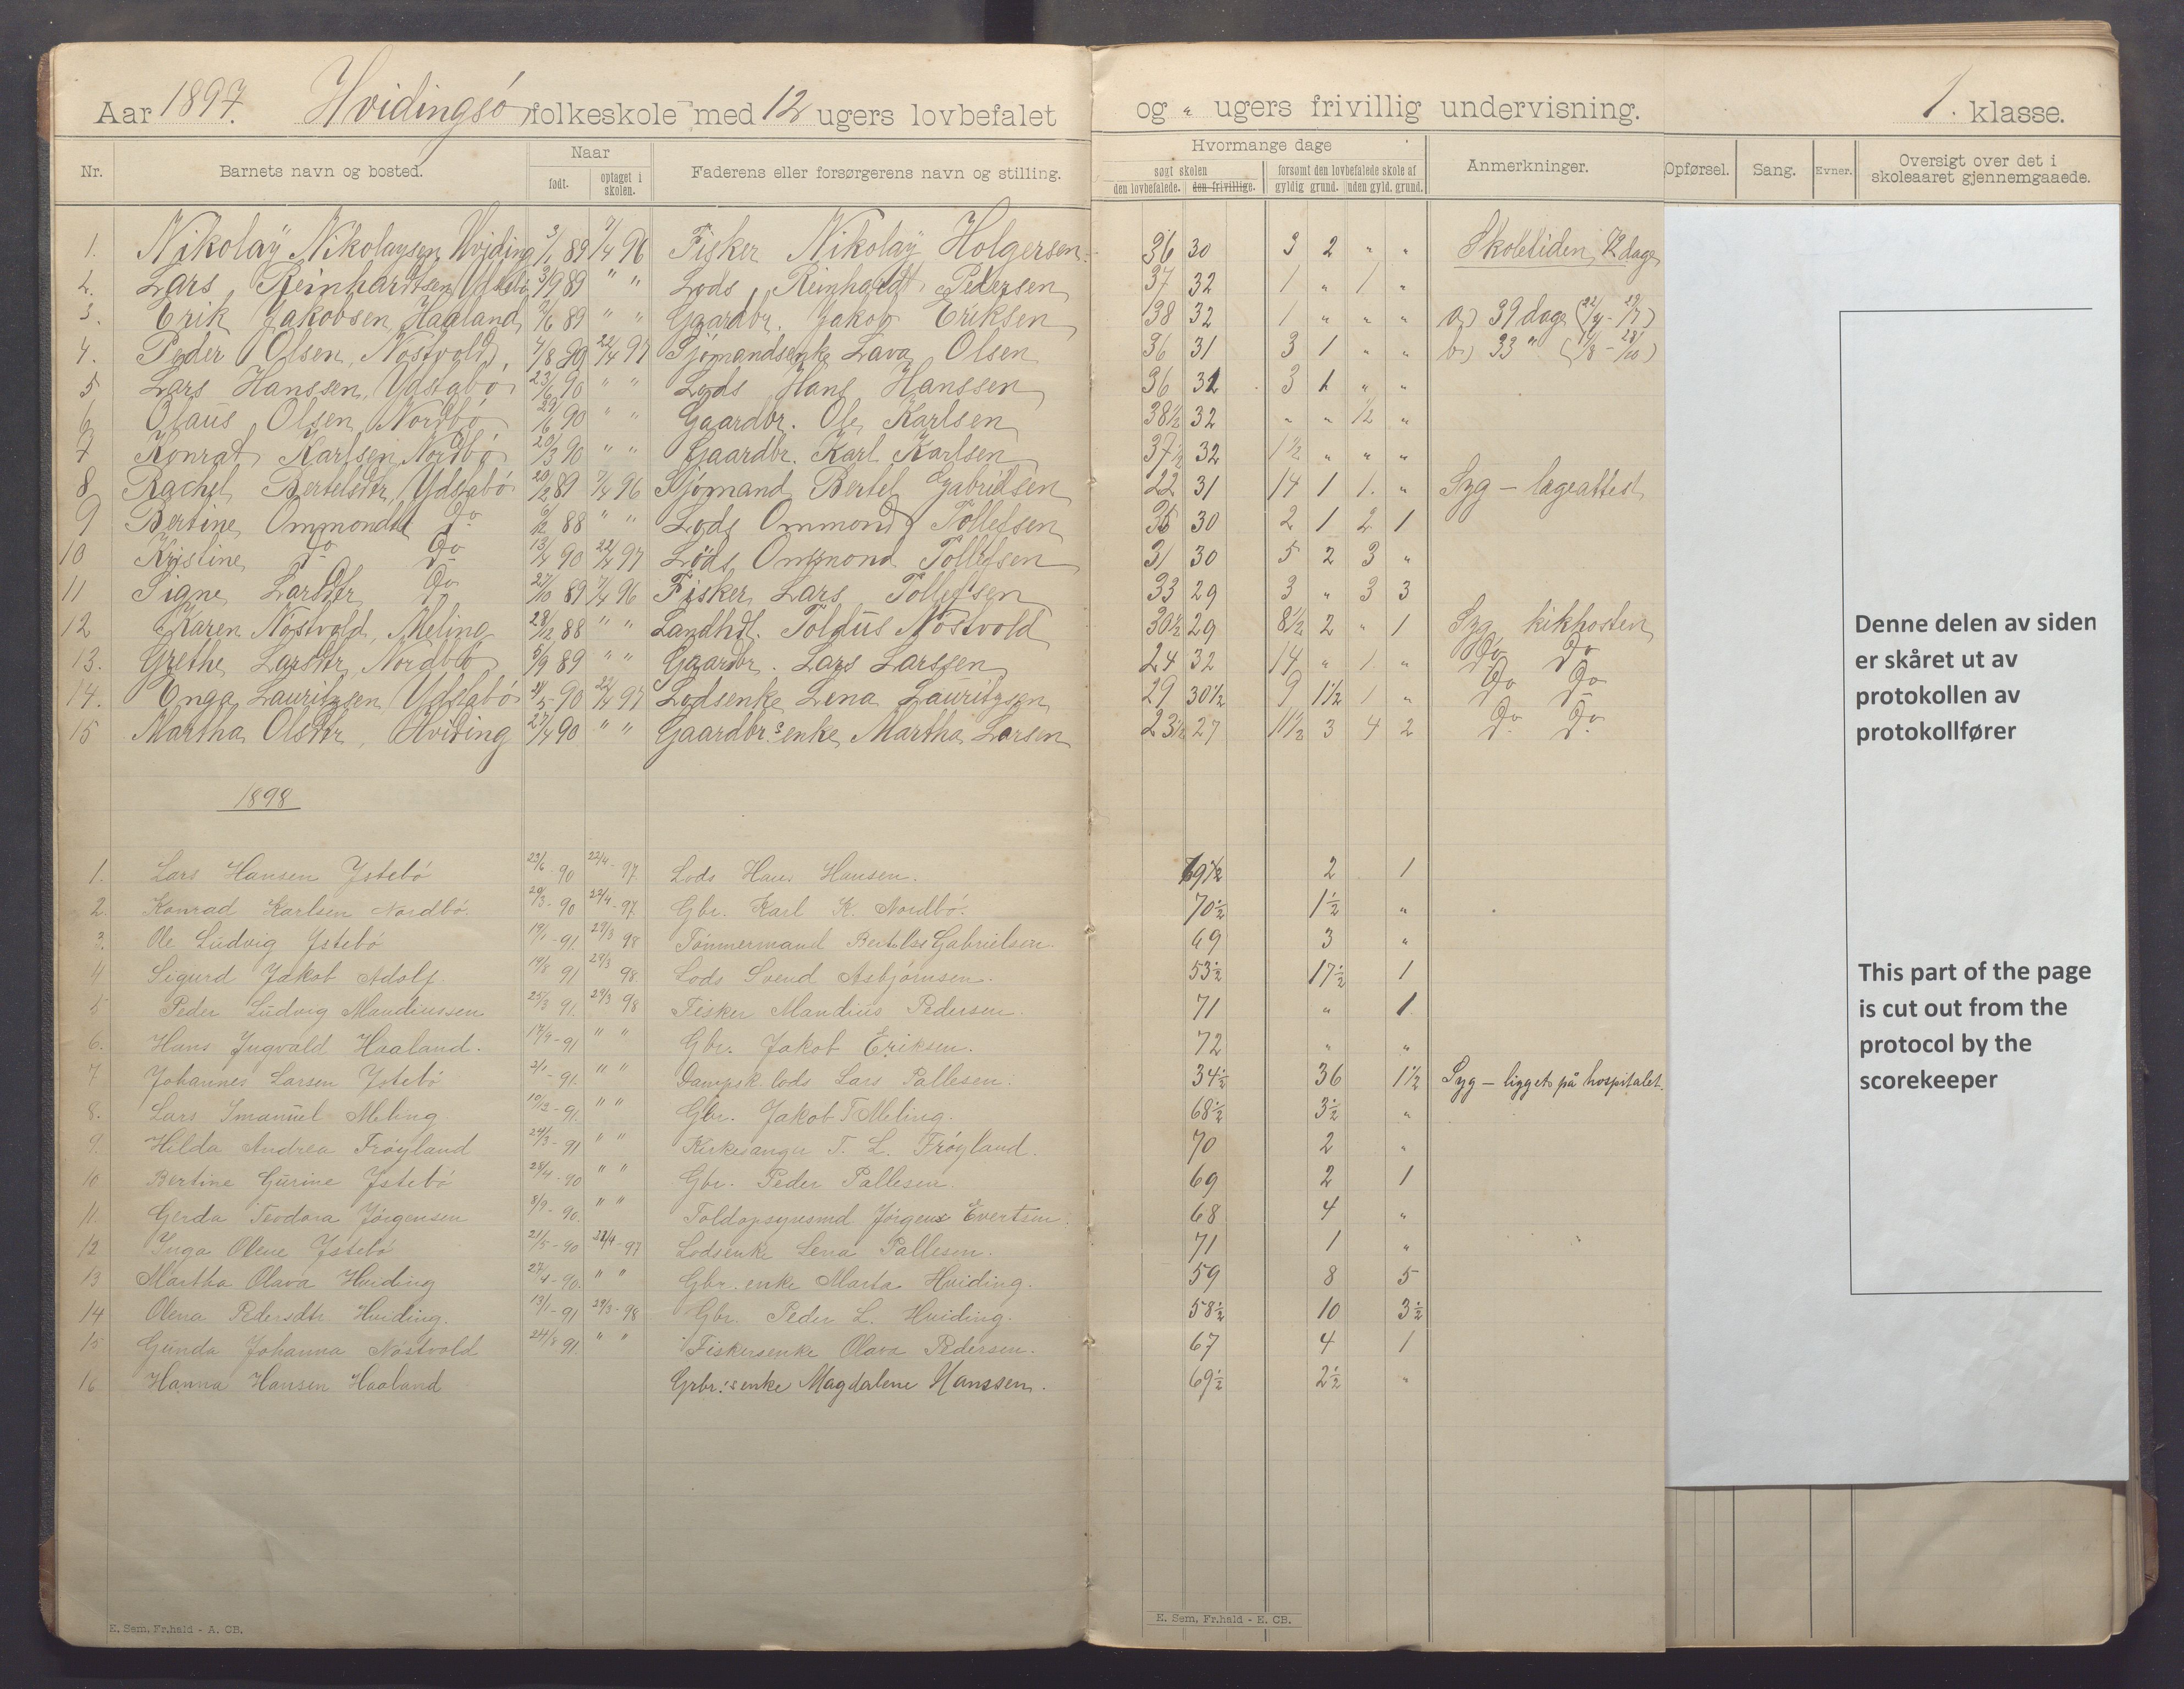 Aar 1897. Hvidingsø folkeskole med 12 ugers lovbefalet og " ugers frivillig undervisning. 1. klasse.
Nr. Barnets navn og bosted. Naar født. optaget i skolen. Faderens eller forsørgerens navn og stilling. Hvormange dage søgt skolen den lovbefalede. den frivillige. forsømt den lovbefalede skole af gyldig grund. uden gyld. grund. Anmerkninger. Opførsel. Sang. Evner. Oversigt over det i skoleaaret gjennemgaaede.
1. Nikolaÿ Nikolaysen Hviding 3/1 89 7/4 96 Fisker Nikolaÿ Holgersen 36 30 3 2 " " Skoletiden 72 dage
2. Lars Reinhardtsen Udstabø 3/9 89 " " Lods Reinhardt Pedersen 37 32 1 " 1 "
3. Erik Jakobsen Haaland 2/6 89 " " Gaardbr. Jakob Eriksen 38 32 1 " " " a) 39 dage
4. Peder Olsen, Nøstvold 4/8 89 22/4 97 Sjømandsenke Lava Olsen 36 31 3 1 " " b) 33 "
5 Lars Hanssen, Udstabø 23/6 90 " " Lods Hans Hanssen 36 31 3 1 " "
6 Olaus Olsen Nordbø 29/6 90 " " Gaardbr. Ole Karlsen 38½ 32 " " ½ "
7 Konrat Karlsen Nordbø 20/3 90 " " Gaardbr. Karl Karlsen 37½ 32 1½ " " "
8 Rachel Bertelsdtr, Udstabø 20/2 89 7/4 96 Sjømand Bertel Gabrielsen 22 31 14 1 1. " Syg – lægeattest
9 Bertine Ommondsd Do 6/12 88 " " Lods Ommond Tollefsen 35 30 2 1 2 1
10 Kristine Do Do 13/4 90 22/4 97 Lods Ommond Tollefsen 31 30 5 2 3 "
11 Signe Larsdtr Do 27/10 89 7/4 96 Fisker Lars Tollefsen 33 29 3 " 3 3
12 Karen Nøstvold, Meling 28/12 88 " " Landhdl. Toldus Nøstvold 30½ 29 8½ 2 " 1 Syg kikhosten
13. Grethe Larsdtr, Nordbø 5/9 89 " " Gaardbr. Lars Larssen 24 32 14 " 1 " Do Do
14. Enga Lauritzsen Udstabø 21/5 90 22/4 97 Lodsenke Lena Lauritzsen 29 30½ 9 1½ 1 " Do Do
15 Martha Olsdtr, Hviding 27/4 90 " " Gaardbr.s enke Martha Larsen 23½ 27 11½ 3 4 2 Do Do
1898
1. Lars Hansen Ystebø 23/6 90 22/4 - 97. Lods Hans Hansen. 69½ 2 1
2. Konrad Karlsen Nordbø. 20/3 - 90 22/4 - 97 Gbr. Karl K. Nordbø. 70½ 1½ "
3. Ole Ludvig Ystebø 19/1 - 91. 29/3 98 Tømmermand Gabrielsen. 69 3 "
4 Sigurd Jakob Adolf. 19/8 91 29/3 98. Lods Svend Asbjørnsen. 53½ 17½ 1
5 Peder Ludvig Maudiussen 25/3 91. 29/3 98 Fisker Maudius Pedersen. 71 " 1.
6. Hans Ingvald Haaland. 17/9 - 91 " " Gbr. Jakob Eriksen. 72 " "
7 Johannes Larsen Ystebø 2/1 - 91. " " Dampsk. lods Lars Pallesen. 34½ 36 1½ Syg – ligget på hospitalet.
8. Lars Imanuel Meling. 10/12 - 91. " " Gbr. Jakob T Meling. 68½ 3½ "
9. Hilda Andrea Frøyland 24/3 - 91 " " Kirkesanger T. L. Frøyland. 70 2 "
10 Bertine Gurine Ystebø 28/4 - 90 " " Gbr. Peder Pallesen. 69 2 1
11. Gerda Teodora Jørgensen 8/9 - 90. " " Toldopsynsmd Jørgen Evertsen. 68 4 "
12 Inga Olene Ystebø 21/5 - 90 22/4 - 97 Lodsenke Lena Pallesen. 71 1 "
13 Martha Olava Hviding 27/4 - 90. " " Gbr. enke Marta Hviding. 59 8 5
14 Olena Pedersdtr Hviding. 13/1 - 91 29/3 - 98 Gbr. Peder L. Hviding. 58½ 10 3½
15 Gunda Johanna Nøstvold 24/8 91. " " Fiskersenke Olava Pedersen. 67 4 1
16 Hanna Hansen Haaland Grbr.'s enke Magdalene Hanssen. 69½ 2½ "
Denne delen av siden
er skåret ut av
protokollen av
protokollfører
This part of the page
is cut out from the
protocol by the
scorekeeper
E. Sem, Fr.hald - A. CB.
E. Sem, Fr.hald - E. CB.